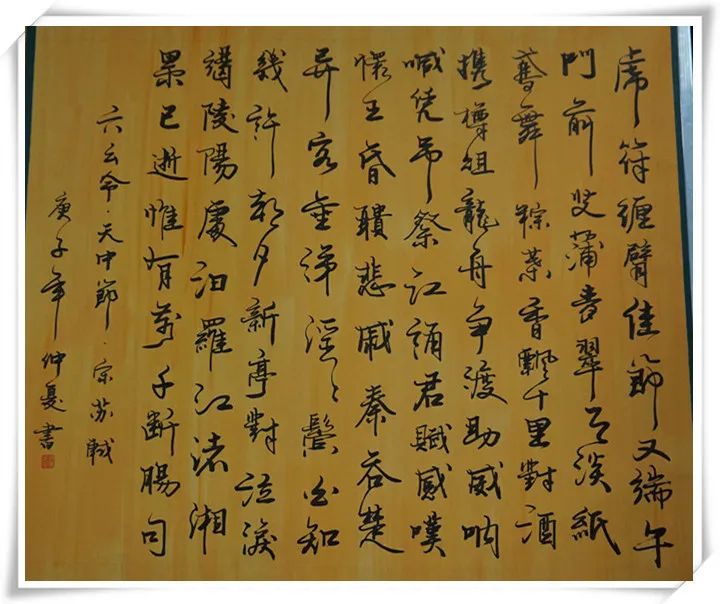 虎符缠臂佳節又端午
門前艾蒲青翠天淡紙
鳶舞粽葉香飄十里對酒
携樽俎龍舟争渡助威呐
喊凭吊祭江誦君賦感嘆
懷王昏聵悲戚秦吞楚
异客垂涕淫々鬓白知
幾許朝夕新亭對泣淚
竭陵陽處汨羅江渚湘
累已逝惟有萬千断腸句
六幺令·天中節·宋苏軾
庚子年仲夏書